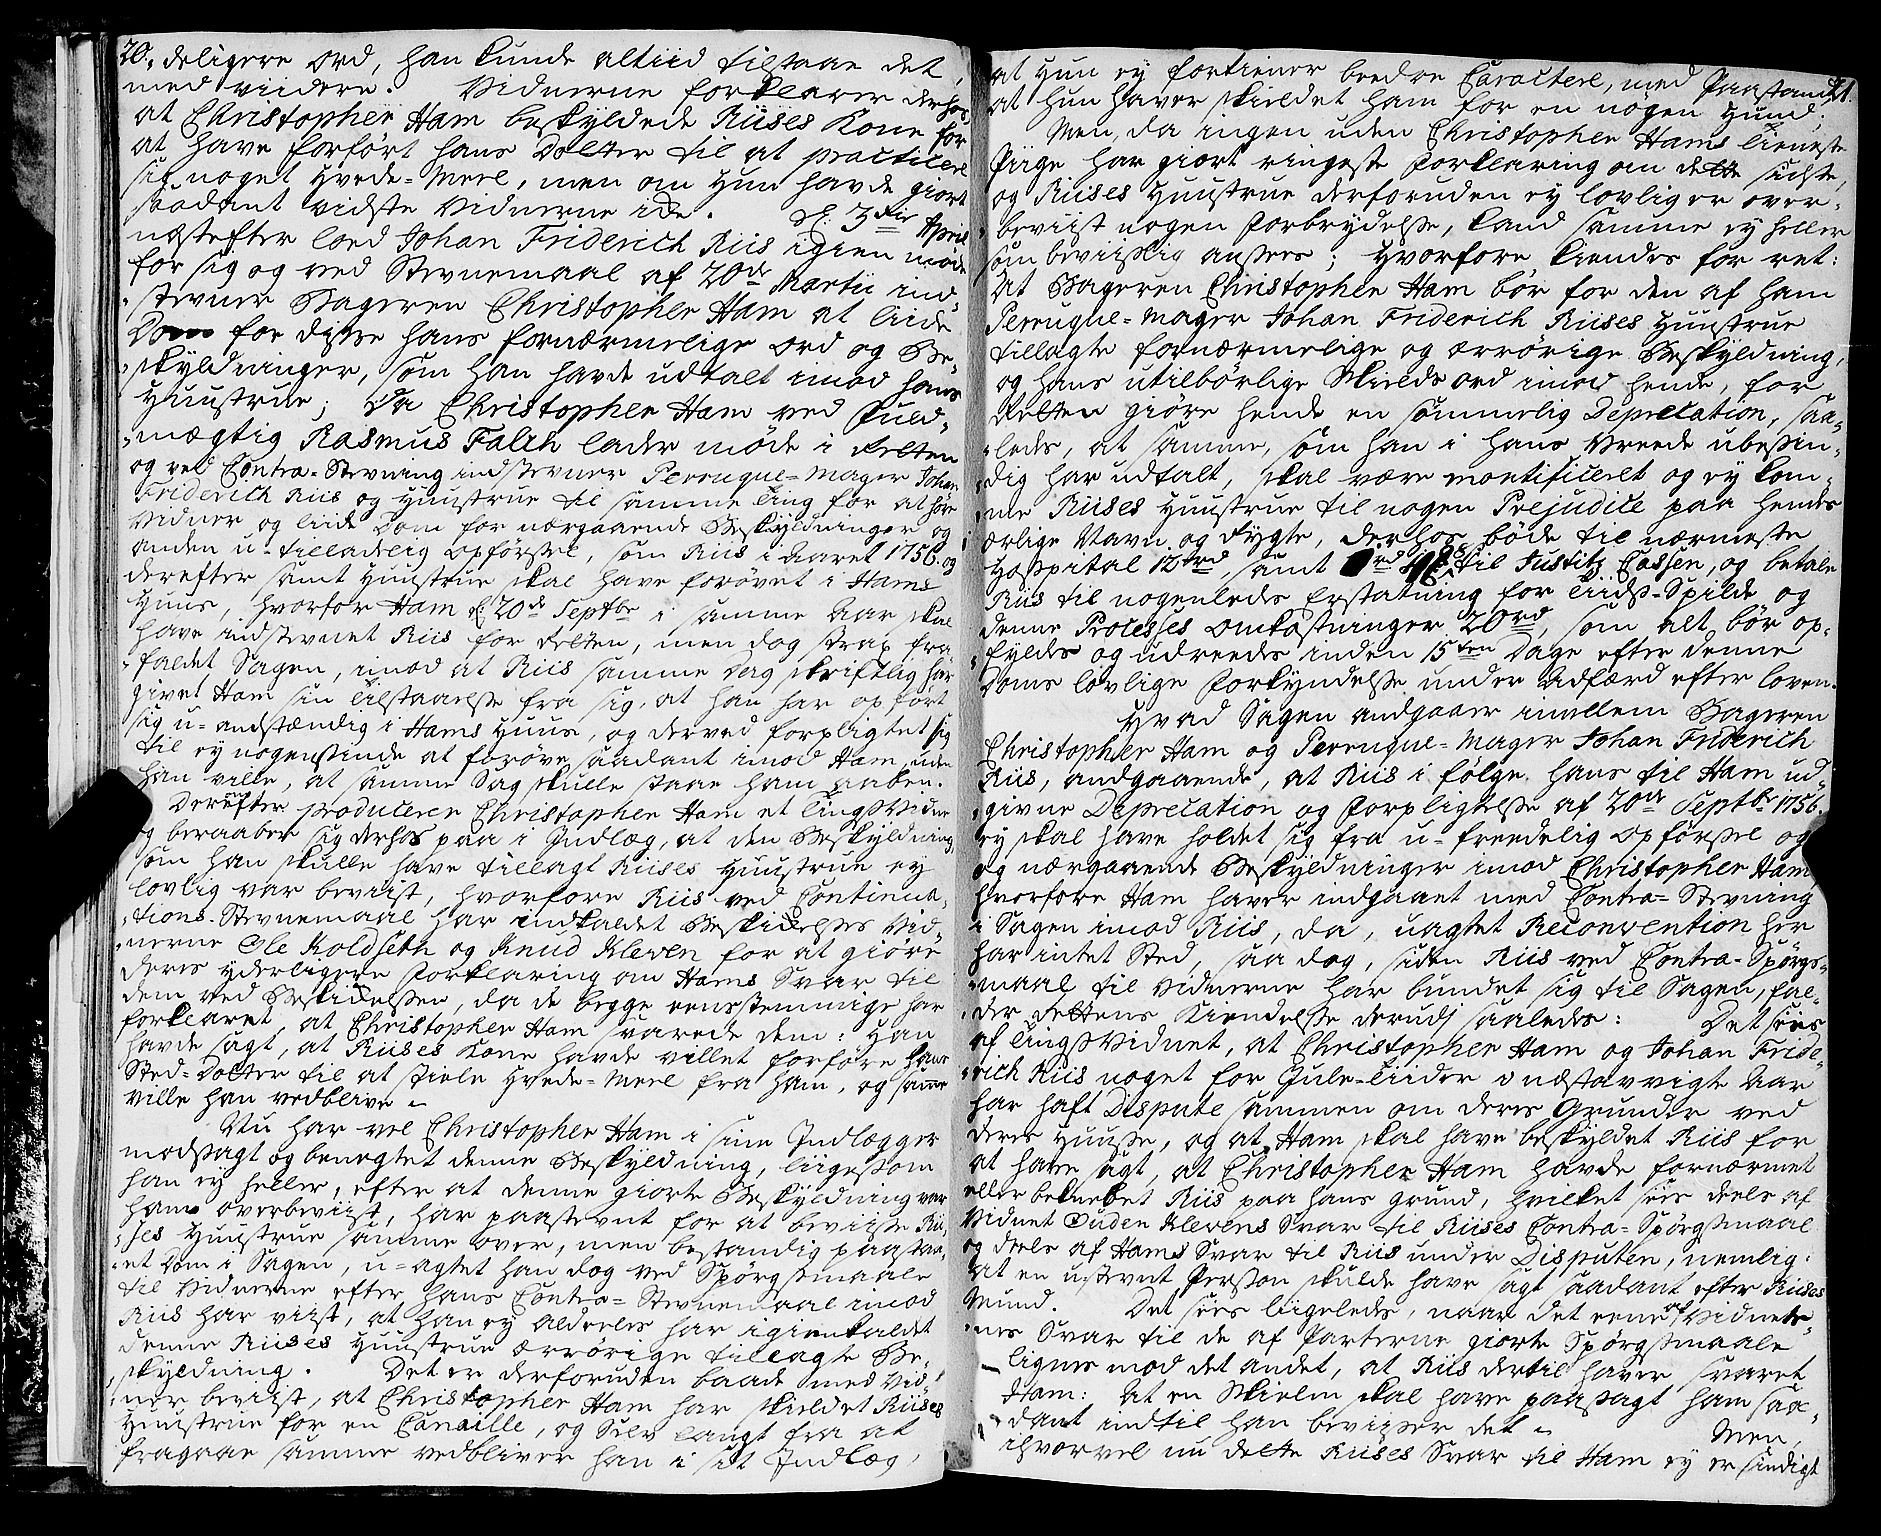 20.
deligere Ord, han kunde altiid tilstaae det,
med viidere. Vidnerne forklarer derhos,
at Christopher Ham beskyldede Riises Kone for
at have forført hans Dotter til at practicere
sig noget Hvede-Meel, men om Hun havde giort
saadant vidste Vidnerne ide. d. 3die April
nestefter loed Johan Friderich Riis igien møde
for sig og ved Stevnemaal af 20de Martii ind-
stevner Bageren Christopher Ham at liide
Dom for disse hans fornærmelige Ord og Be-
skyldninger, som han havde udtalt imod hans
Huustrue; Da Christopher Ham ved Fuld-
mægtig Rasmus Falch lader møde i Retten
og ved Contra-Stevning indstevner Perruque-Mager Johan
Friderich Riis og Huustrue til samme Ting for at høre
Vidner og liide Dom for nærgaaende Beskyldninger og
anden u-tilladelig Opførsel, som Riis i Aaret 1756. og
derefter samt Huustrue skal have forøvet i Hams
Huus, hvorfor Ham d. 20de Septbr i samme Aar skal
have indstevnet Riis for Retten, men dog strax fra-
faldet Sagen, imod at Riis samme Dag skriftlig har
givet Ham sin Tilstaaelse fra sig, at han har opført
sig u-anstændig i Hams Huus, og derved forpligtet sig
til ey nogensinde at forøve saadant imod Ham, uden
han ville, at samme Sag skulle staae ham aaben.
Derefter producerer Christopher Ham et Tingsvidne
og beraaber sig derhos paa i Indlæg, at den Beskyldning
som han skulle have tillagt Riises Huustrue ey
lovlig var beviist, hvorfore Riis ved Continua-
tions-Stevnemaal har indkaldet Beskikkelses Vid-
nerne Ole Koldseth og Knud Kleven for at giøre
deres yderligere Forklaring om Hams Svar til
dem ved Beskikkelsen, da de begge eenstemmige har
forklaret, at Christopher Ham svarede dem: Han
havde sagt, at Riises Kone havde villet forføre hans
Sted-Dotter til at stiele Hvede-Meel fra ham, og samme
ville han vedblive.
Nu har vel Christopher Ham i sine Indlægger
modsagt og benegtet denne Beskyldning, liigesom
han ey heller, efter at denne giorte Beskyldning var
ham overbeviist, har paastevnt for at beviise Rii-
ses Huustrue samme over, men bestandig paastaa-
et Dom i Sagen, u-agtet han dog ved Spørgsmaale
til Vidnerne efter hans Contra-Stevnemaal imod
Riis har viist, at han ey aldeeles har igienkaldet
denne Riises Huustrue ærrørige tillagte Be-
skyldning. Det er derforuden baade med Vid-
ner beviist, at Christopher Ham har skieldet Riises
Huustrue for en Canaille, og Selv langt fra at
fragaae samme vedbliver han i sit Indlæg,
21.
at Hun ey fortiener bedre Caractere, med Paastand
at hun haver skieldet ham for en nogen Hund;
Men, da ingen uden Christopher Hams tieneste
Piige har giort ringeste Forklaring om dette sidste,
og Riises Huustrue derforuden ey lovlig er over-
beviist nogen Forbrydelse, kand samme ey heller
som beviislig ansees; Hvorfore kiendes for ret:
At Bageren Christopher Ham bør for den af ham
Perruque-Mager Johan Friderich Riises Huustrue
tillagte fornærmelige og ærrørige Beskyldning,
og hans utilbørlige Skields ord imod hende, for
Retten giøre hende en sømmelig Deprecation, saa-
ledes, at samme, som han i hans Vreede ubesin-
dig har udtalt, skal være mortificeret og ey kom-
me Riises Huustrue til nogen Prejudice paa hendes
ærlige Navn og Rygte, derhos bøde til nærmeste
Hospital 12 rd, samt rd til Justitz Cassen, og betale
Riis til nogenledes Erstatning for Tiids-Spilde og
denne Processes Omkostninger 20 rd, som alt bør op-
fyldes og udreedes inden 15ten Dage efter denne
Doms lovlige Forkyndelse under Adfærd efter Loven.
Hvad Sagen andgaaer imellem Bageren
Christopher Ham og Perruque-Mager Johan Friderich
Riis, andgaaende, at Riis i følge hans til Ham ud-
givne Deprecation og Forpligtelse af 20de Septbr 1756.
ey skal have holdet sig fra u-freedelig Opførsel og
og nærgaaende Beskyldninger imod Christopher Ham
hvorfore Ham haver indgaaet med Contra-Stevning
i Sagen imod Riis, da, uagtet Reconvention her
har intet Sted, saa dog, siden Riis ved Contra-Spørgs-
maal til Vidnerne har bundet sig til Sagen, fal-
der Rettens Kiendelse derudi saaledes: Det sees
af Tingsvidnet, at Christopher Ham og Johan Fride-
rich Riis noget for Jule-Tiider i næstavvigte Aar
har haft Dispute sammen om deres Grunder ved
deres Huuse, og at Ham skal have beskyldet Riis for
at have sagt, at Christopher Ham havde fornærmet
eller beknebet Riis paa hans Grund, hvilket sees deels af
Vidnet Ouden Klevens Svar til Riises Contra-Spørgsmaal
og deels af Hams Svar til Riis under Disputen, nemlig:
At en ustevnt Person skulde have sagt saadant efter Riises
Mund. Det sees liigeledes, naar det eene af Vidner-
nes Svar til de af Parterne giorte Spørgsmaale
lignes mod det andet, at Riis dertil haver svaret
Ham: At en Skielm skal have paasagt ham saa-
dant indtil han beviiser det. Men,
ihvorvel nu dette Riises Svar til Ham ey er sindigt